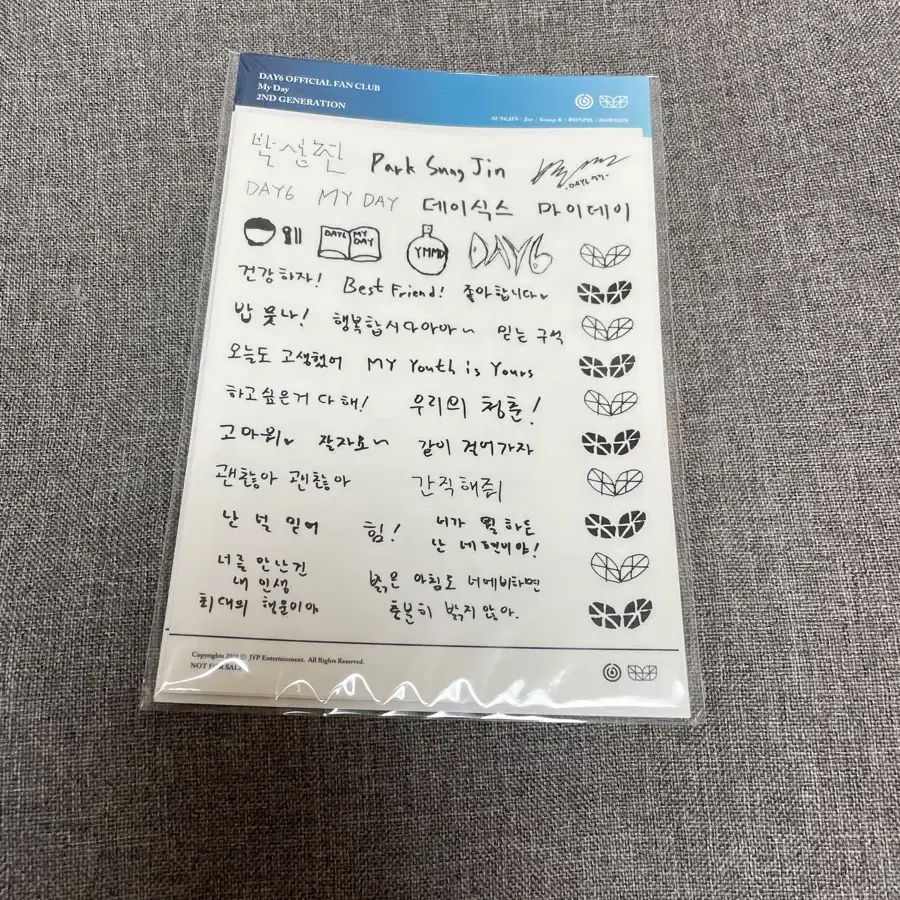 DAY6 OFFICIAL FAN CLUB
My Day
2ND GENERATION
SUNGJIN / Jae / Young K / WONPIL / DOWOON
박성진 Park Sung Jin
DAY6 MY DAY 데이식스 마이데이
DAY6 MY DAY YMMD DAY6
건강하자! Best Friend! 좋아합니다
밥 묵나! 행복합시다아아~ 믿는 구석
오늘도 고생했어 MY Youth is Yours
하고싶은거 다 해! 우리의 청춘!
고마워 잘자요~ 같이 걸어가자
괜찮아 괜찮아 간직해줘
난 널 믿어 힘! 너가 뭘 하든
난 네편이야!
너를 만난건
내 인생
최대의 행운이야
밝은 아침도 너에비하면
충분히 밝지 않아.
Copyrights ⓒ JYP Entertainment. All Rights Reserved.
NOT FOR SALE